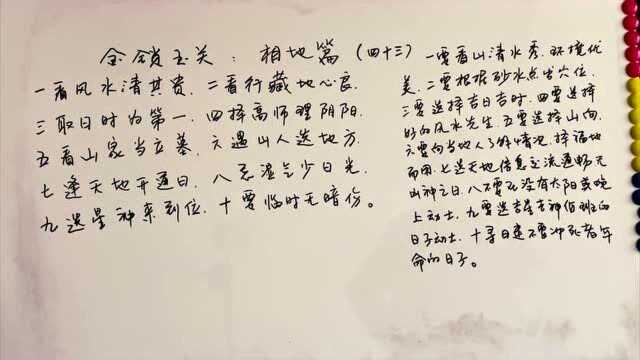 金锁玉关：相地篇（四十三）
一看风水清其贵．二看行藏地心良．
三取日时为第一．四择高师理阴阳．
五看山家当立墓．六遇山人选地方．
七逢天地开通日．八忌湿气少日光．
九选星神来到位．十要临时无暗伤。
一要看山清水秀．环境优
美．二要根据砂水点出穴位．
三要选择吉日吉时．四要选择
好的风水先生．五要选择山向．
六要向当地人了解情况．择福地
而用．七选天地信息交流通畅无
凶神之日．八不要在没有太阳或晚
上动土．九要选吉星吉神值班的
日子动土．十寻日连不要冲死者年
命的日子。